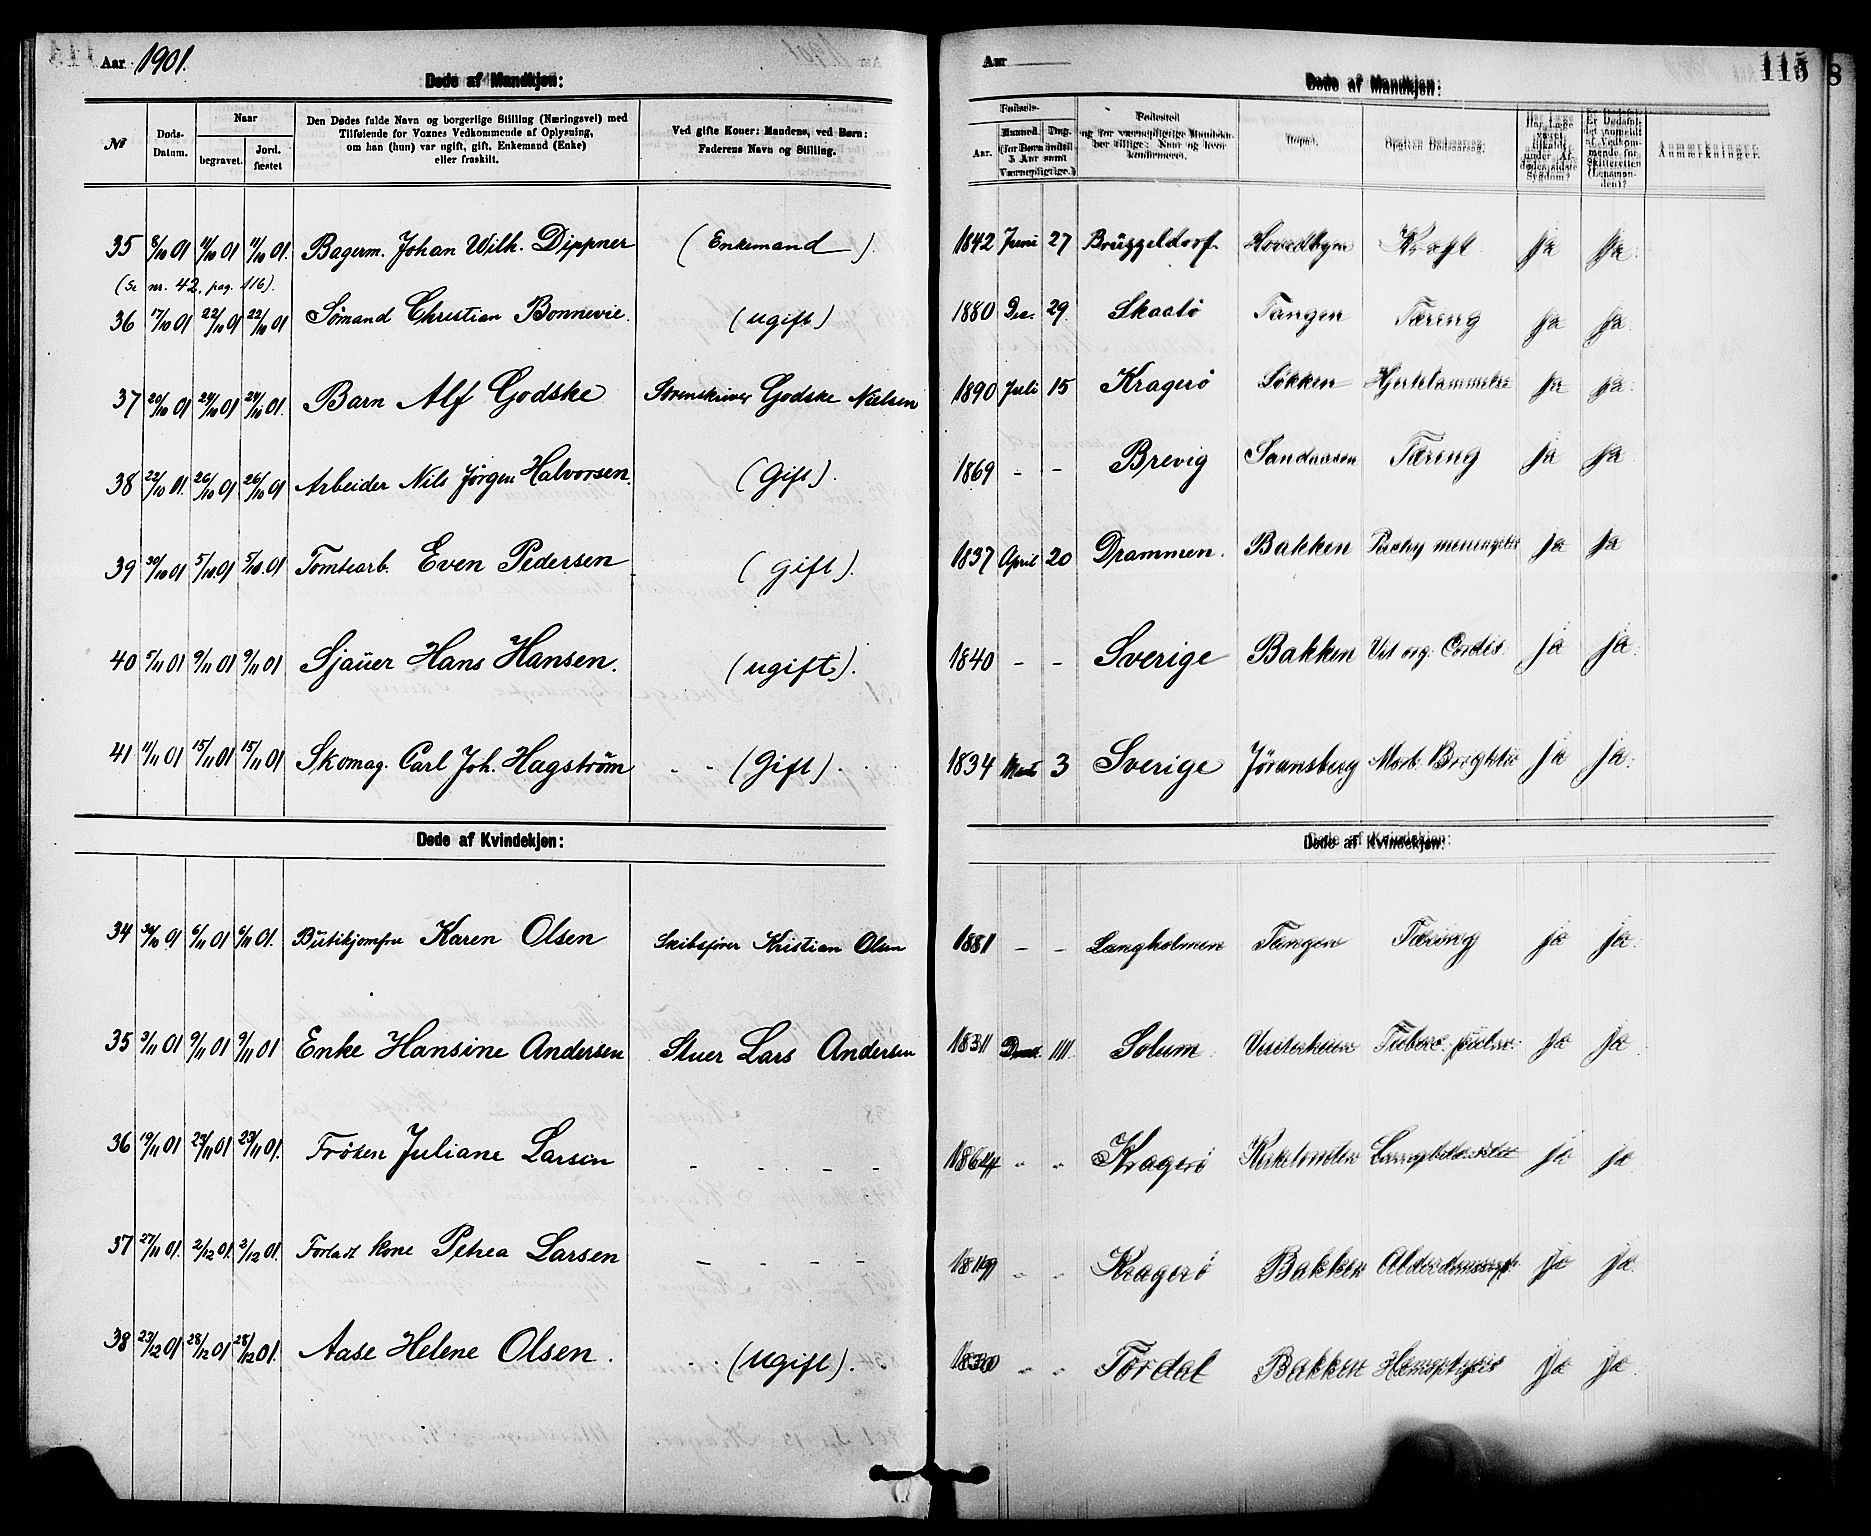 Aar 1901.
Døde af Mandkjøn:
№ | Døds-Datum. | Naar begravet. | Jord. fæstet | Den Dødes fulde Navn og borgerlige Stilling (Næringsvei) med Tilføiende for Voxnes Vedkommende af Oplysning, om han (hun) var ugift, gift, Enkemand (Enke) eller fraskilt. | Ved gifte Koner: Mandens, ved Børn: Faderens Navn og Stilling.
35 8/10 01 11/10 01 11/10 01. Bagerm. Johan Wilh. Dippner (Enkemand).
(Se nr. 42, pag. 116).
36 17/10 01 22/10 01 22/10 01 Sømand Christian Bonnevie. (ugift)
37 20/10 01 24/10 01 24/10 01 Barn Alf Godske Sorenskriver Godske Nielsen
38 22/10 01. 26/10 01 26/10 01 Arbeider Nils Jørgen Halvorsen. (Gift).
39 30/10 01 5/10. 01 5/10. 01 Tomtearb. Even Pedersen (gift).
40 5/11 01 9/11 01 9/11 01 Sjauer Hans Hansen. (ugift).
41 11/11 01 15/11 01 15/11 01 Skomag. Carl Joh. Hagstrøm (Gift).
Døde af Kvindekjøn:
34 30/10 01 6/11 01 6/11 01. Butikjomfru Karen Olsen Skibsfører Kristian Olsen
35 3/11 01 9/11 01 9/11 01 Enke Hansine Andersen Stuer Lars Andersen
36 19/11 01 23/11 01 23/11 01. Frøken Juliane Larsen - - - -
37 27/11 01. 2/12 01. 2/12 01. Forladt kone Petrea Larsen - - - -
38 23/12 01 28/12 01 28/12 01. Aase Helene Olsen. (Ugift).
Aar
115
8
Døde af Mandkjøn:
Fødsels- Aar. | Maaned. | Dag. (for Børn indtil 5 Aar samt Værnepligtige.) | Fødested og for værnepligtige Mandskaber tillige: Naar og hvor konfirmeret. | Bopæl. | Opgiven Dødsaarsag. | Har Læge været tilkaldt under Afdødes sidste Sygdom? | Er Dødsfaldet anmeldt af Vedkommende for Skifteretten (Lensmanden)? | Anmærkninger.
1842 Juni 27 Brüggeldorf. Hovedbyen Kræft ja ja.
1880 Dec. 29. Skaatø Tangen Tæring ja ja.
1890 Juli 15 Kragerø Løkken Hjertelammelse ja ja.
1869 - - Brevig Sandaasen Tæring ja ja.
1837 April 20 Drammen. Bakken ja ja
1840 - - Sverige Bakken Vit. org. Cordis. ja ja.
1834 3 Sverige Jøransberg Morb. Brightii ja ja.
Døde af Kvindekjøn:
1881 - - Langholmen Tangen Tæring ja ja.
1831 Solum Tuberc. pulm. ja ja.
Kragerø Kirketomten ja ja
Kragerø Bakken ja ja.
1830 Tørdal Bakken Hæmoptysis ja ja.